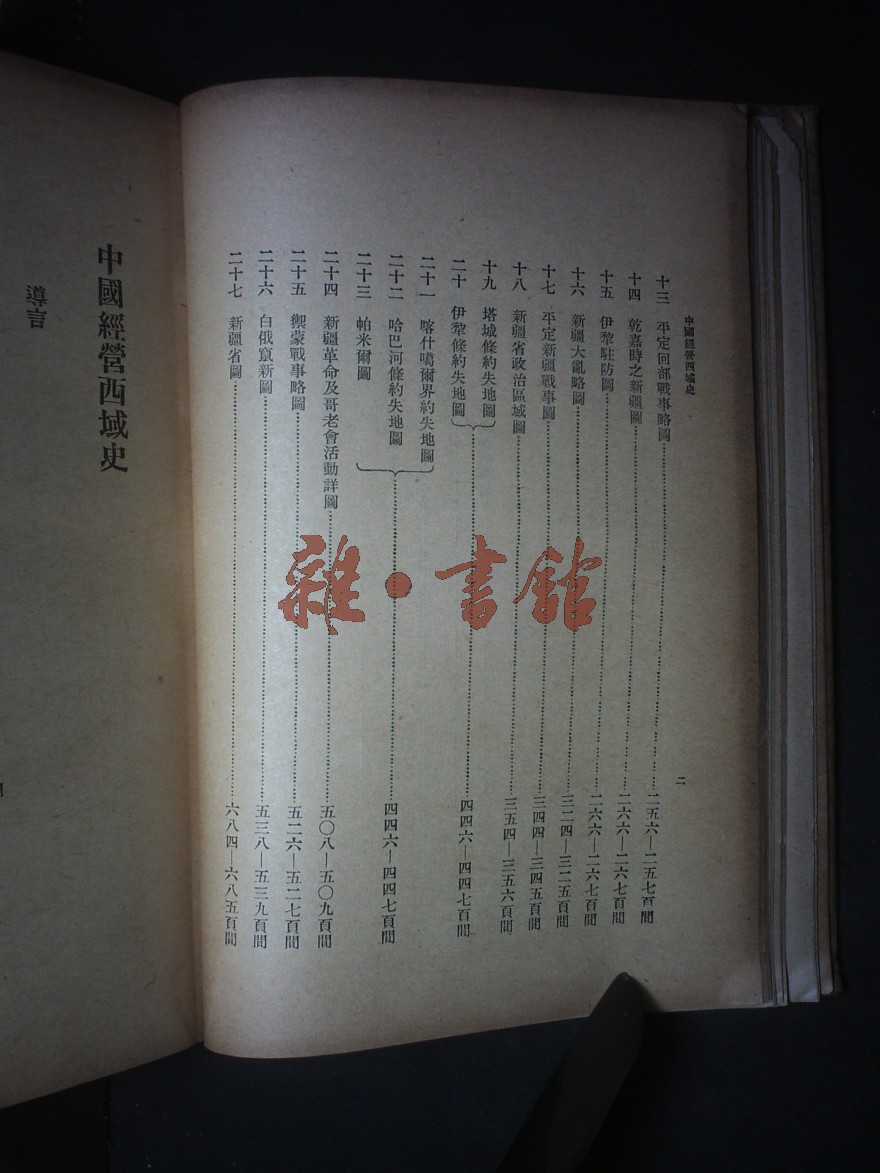 中國經營西域史
二
十三 平定回部戰事略圖………二五六—二五七頁間
十四 乾嘉時之新疆圖………二六六—二六七頁間
十五 伊犂駐防圖………二六六—二六七頁間
十六 新疆大亂略圖………三二四—三二五頁間
十七 平定新疆戰事圖………三四四—三四五頁間
十八 新疆省政治區域圖………三五四—三五六頁間
十九 塔城條約失地圖
二十 伊犂條約失地圖………四四六—四四七頁間
二十一 喀什噶爾界約失地圖
二十二 哈巴河條約失地圖………四四六—四四七頁間
二十三 帕米爾圖
二十四 新疆革命及哥老會活動詳圖………五〇八—五〇九頁間
二十五 禦蒙戰事略圖………五二六—五二七頁間
二十六 白俄竄新圖………五三八—五三九頁間
二十七 新疆省圖………六八四—六八五頁間
中國經營西域史
導言
雜·書館